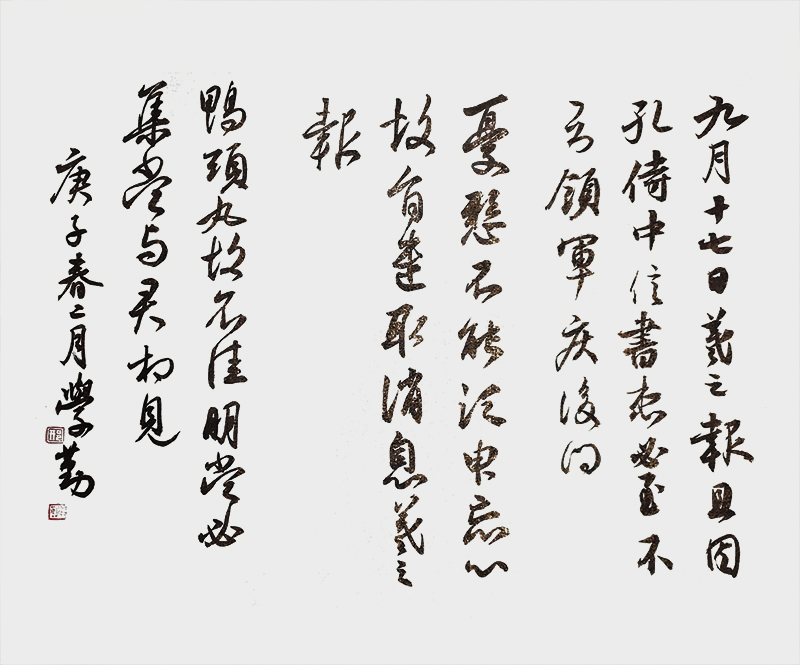 九月十七日羲之報且因
孔侍中信書想必至不
知領軍疾後問
憂愁不能須申忘心
故旨遣取消息羲之
報
鴨頭丸故不佳明當必
集當与君相見
庚子春二月學勤